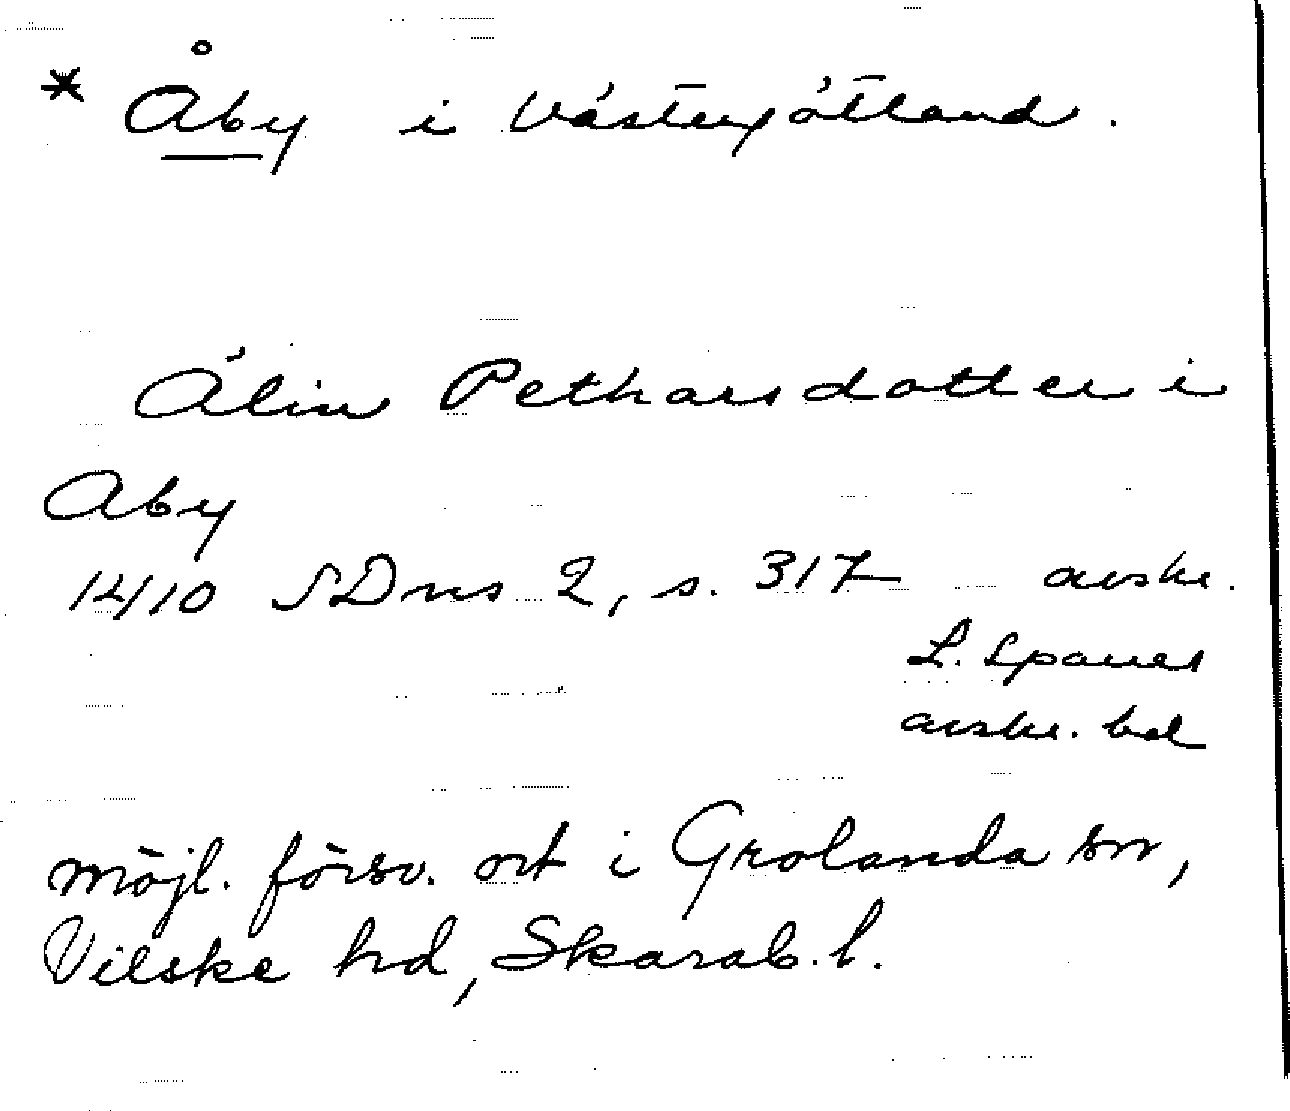 * Åby i Västergötland.
Älin Petharsdotter i
Aby
1410 SDns 2, s. 317 avskr.
L. Spaner
avskr. bd
möjl. försv. ort i Grolanda sn,
Vilske hd, Skarab. l.